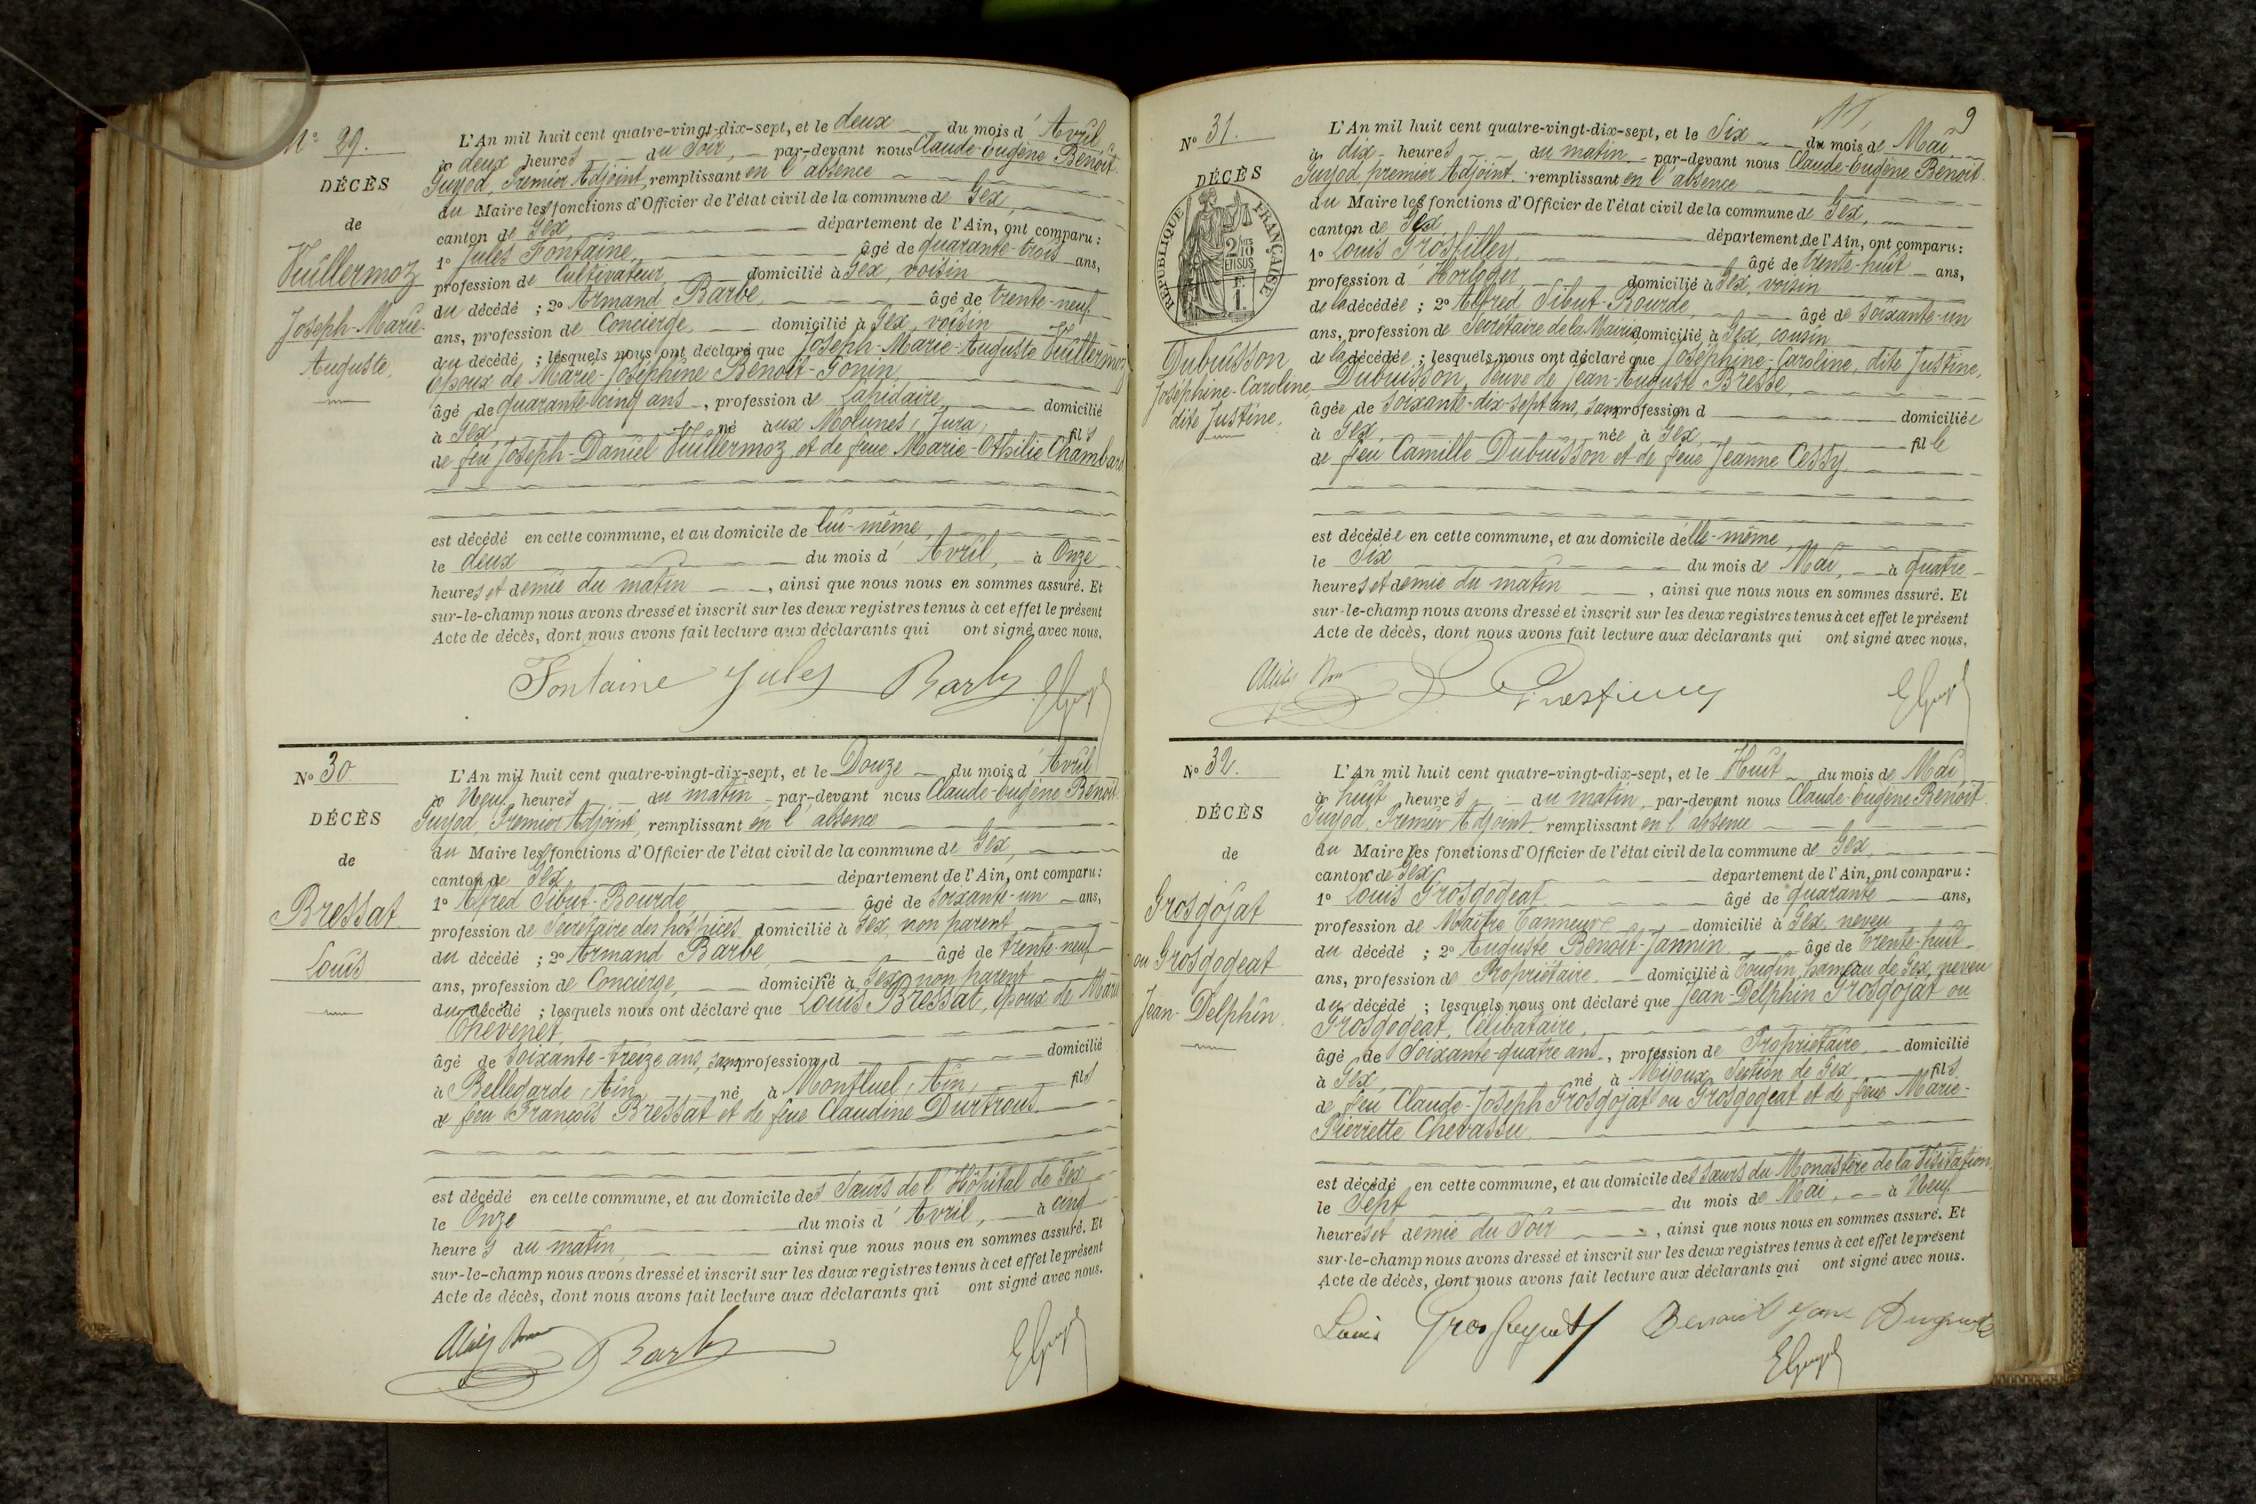 N° 29.
DÉCÈS
de
Vuillermoz
Joseph-Marie-
Auguste.
L'An mil huit cent quatre-vingt-dix-sept, et le deux du mois d'Avril
à deux heures du Soir, par-devant nous Claude-Eugène Benoit-
Guyod, Premier Adjoint, remplissant en l'absence
du Maire les fonctions d'Officier de l'état civil de la commune de Gex,
canton de Gex, département de l'Ain, ont comparu :
1° Jules Fontaine, âgé de quarante-trois ans,
profession de Cultivateur, domicilié à Gex, voisin
du décédé ; 2° Armand Barbe, âgé de trente-neuf
ans, profession de Concierge, domicilié à Gex, voisin
du décédé ; lesquels nous ont déclaré que Joseph-Marie-Auguste Vuillermoz
époux de Marie-Joséphine Benoit-Gonin
âgé de quarante-cinq ans, profession de Lapidaire, domicilié
à Gex, né aux Molunes, Jura, fils
de feu Joseph-Daniel Vuillermoz et de feue Marie-Othilie Chambard
est décédé en cette commune, et au domicile de lui-même,
le deux du mois d'Avril, à Onze
heures et demie du matin, ainsi que nous nous en sommes assuré. Et
sur-le-champ nous avons dressé et inscrit sur les deux registres tenus à cet effet le présent
Acte de décès, dont nous avons fait lecture aux déclarants qui ont signé avec nous.
Fontaine Jules Barbe
N° 30
DÉCÈS
de
Bressat
Louis
L'An mil huit cent quatre-vingt-dix-sept, et le Douze du mois d'Avril
à Neuf heures du matin par-devant nous Claude-Eugène Benoit-
Guyod, Premier Adjoint, remplissant en l'absence
du Maire les fonctions d'Officier de l'état civil de la commune de Gex,
canton de Gex, département de l'Ain, ont comparu :
1° Alfred Sibut-Bourde âgé de soixante-un ans,
profession de Secrétaire des hospices, domicilié à Gex, non parent
du décédé ; 2° Armand Barbe, âgé de trente-neuf
ans, profession de Concierge, domicilié à Gex, non parent
du décédé ; lesquels nous ont déclaré que Louis Bressat, époux de Marie
Chevenet,
âgé de soixante-treize ans, sans profession d domicilié
à Bellegarde, Ain, né à Montluel, Ain, fils
de feu François Bressat et de feue Claudine Durtrous
est décédé en cette commune, et au domicile des Sœurs de l'Hôpital de Gex
le Onze du mois d'Avril, à cinq
heures du matin, ainsi que nous nous en sommes assuré. Et
sur-le-champ nous avons dressé et inscrit sur les deux registres tenus à cet effet le présent
Acte de décès, dont nous avons fait lecture aux déclarants qui ont signé avec nous.
Barbe
9
N° 31.
DÉCÈS
RÉPUBLIQUE FRANÇAISE
2/10
EN SUS
F
1.
Dubuisson
Joséphine-Caroline,
dite Justine.
L'An mil huit cent quatre-vingt-dix-sept, et le Six du mois de Mai
à dix heures du matin par-devant nous Claude-Eugène Benoit-
Guyod, premier Adjoint, remplissant en l'absence
du Maire les fonctions d'Officier de l'état civil de la commune de Gex,
canton de Gex, département de l'Ain, ont comparu :
1° Louis Grosfilley, âgé de trente-huit ans,
profession d'Horloger, domicilié à Gex, voisin
de la décédée ; 2° Alfred Sibut-Bourde, âgé de soixante-un
ans, profession de Secrétaire de la Mairie, domicilié à Gex, cousin
de la décédée ; lesquels nous ont déclaré que Joséphine-Caroline, dite Justine,
Dubuisson, veuve de Jean-Auguste Bresse,
âgée de soixante-dix-sept ans, sans profession d domiciliée
à Gex, née à Gex, fille
de feu Camille Dubuisson et de feue Jeanne Cessy
est décédée en cette commune, et au domicile d'elle-même,
le Six du mois de Mai, à quatre
heures et demie du matin, ainsi que nous nous en sommes assuré. Et
sur-le-champ nous avons dressé et inscrit sur les deux registres tenus à cet effet le présent
Acte de décès, dont nous avons fait lecture aux déclarants qui ont signé avec nous.
N° 32.
DÉCÈS
de
Grosgojat
ou Grosgogeat
Jean-Delphin.
L'An mil huit cent quatre-vingt-dix-sept, et le Huit du mois de Mai
à huit heures du matin, par-devant nous Claude-Eugène Benoit-
Guyod, Premier Adjoint remplissant en l'absence
du Maire les fonctions d'Officier de l'état civil de la commune de Gex,
canton de Gex, département de l'Ain, ont comparu :
1° Louis Grosgogeat âgé de quarante ans,
profession de Maître Tanneur domicilié à Gex, neveu
du décédé ; 2° Auguste Benoit-Jannin âgé de Trente-huit
ans, profession de Propriétaire domicilié à Tougin, hameau de Gex, neveu
du décédé ; lesquels nous ont déclaré que Jean-Delphin Grosgojat ou
Grosgogeat, Célibataire,
âgé de Soixante-quatre ans, profession de Propriétaire domicilié
à Gex, né à Mijoux, Section de Gex fils
de feu Claude-Joseph Grosgojat ou Grosgogeat et de feue Marie-
Pierrette Chevassu
est décédé en cette commune, et au domicile des Sœurs du Monastère de la Visitation,
le Sept du mois de Mai, à Neuf
heures et demie du Soir, ainsi que nous nous en sommes assuré. Et
sur-le-champ nous avons dressé et inscrit sur les deux registres tenus à cet effet le présent
Acte de décès, dont nous avons fait lecture aux déclarants qui ont signé avec nous.
Louis Grosgogeat